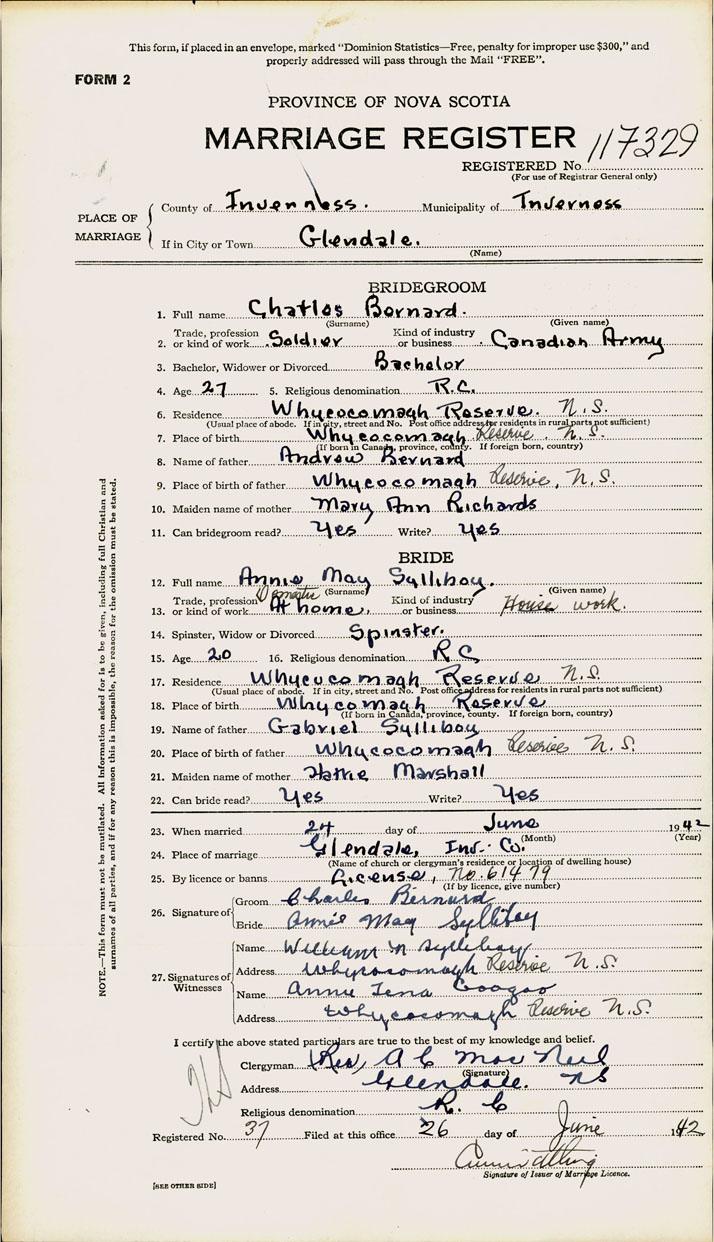 This form, if placed in an envelope, marked "Dominion Statistics—Free, penalty for improper use $300," and
properly addressed will pass through the Mail "FREE".
FORM 2
PROVINCE OF NOVA SCOTIA
MARRIAGE REGISTER 117329
REGISTERED No.
(For use of Registrar General only)
PLACE OF MARRIAGE
County of Inverness. Municipality of Inverness
If in City or Town Glendale.
(Name)
BRIDEGROOM
1. Full name Charles Bernard.
(Surname) (Given name)
2. Trade, profession or kind of work Soldier Kind of industry or business Canadian Army
3. Bachelor, Widower or Divorced Bachelor
4. Age 27 5. Religious denomination R.C.
6. Residence Whycocomagh Reserve. N.S.
(Usual place of abode. If in city, street and No. Post office address for residents in rural parts not sufficient)
7. Place of birth Whycocomagh Reserve. N.S.
(If born in Canada, province, county. If foreign born, country)
8. Name of father Andrew Bernard
9. Place of birth of father Whycocomagh Reserve, N.S.
10. Maiden name of mother Mary Ann Richards
11. Can bridegroom read? Yes Write? Yes
BRIDE
12. Full name Annie May Sylliboy.
(Surname) (Given name)
13. Trade, profession or kind of work Domestic At home. Kind of industry or business House work.
14. Spinster, Widow or Divorced Spinster.
15. Age 20 16. Religious denomination R C
17. Residence Whycocomagh Reserve N.S.
(Usual place of abode. If in city, street and No. Post office address for residents in rural parts not sufficient)
18. Place of birth Whycomagh Reserve
(If born in Canada, province, county. If foreign born, country)
19. Name of father Gabriel Sylliboy
20. Place of birth of father Whycocomagh Reserve N.S.
21. Maiden name of mother Marshall
22. Can bride read? Yes Write? Yes
23. When married 24 day of June 1942
(Month) (Year)
24. Place of marriage Glendale, Inv. Co.
(Name of church or clergyman's residence or location of dwelling house)
25. By licence or banns License, No. 61479
(If by licence, give number)
26. Signature of Groom Charles Bernard
Bride Annie May Sylliboy
27. Signatures of Witnesses
Name William Sylliboy
Address Whycocomagh Reserve N.S.
Name Annie Lena Googoo
Address Whycocomagh Reserve N.S.
NOTE.—This form must not be mutilated. All Information asked for is to be given, including full Christian and
surnames of all parties, and if for any reason this is impossible, the reason for the omission must be stated.
I certify the above stated particulars are true to the best of my knowledge and belief.
Clergyman (Rev) A C MacNeil
(Signature)
Address Glendale. NS
Religious denomination R. C
Registered No. 37 Filed at this office 26 day of June 1942
Signature of Issuer of Marriage Licence.
[SEE OTHER SIDE]